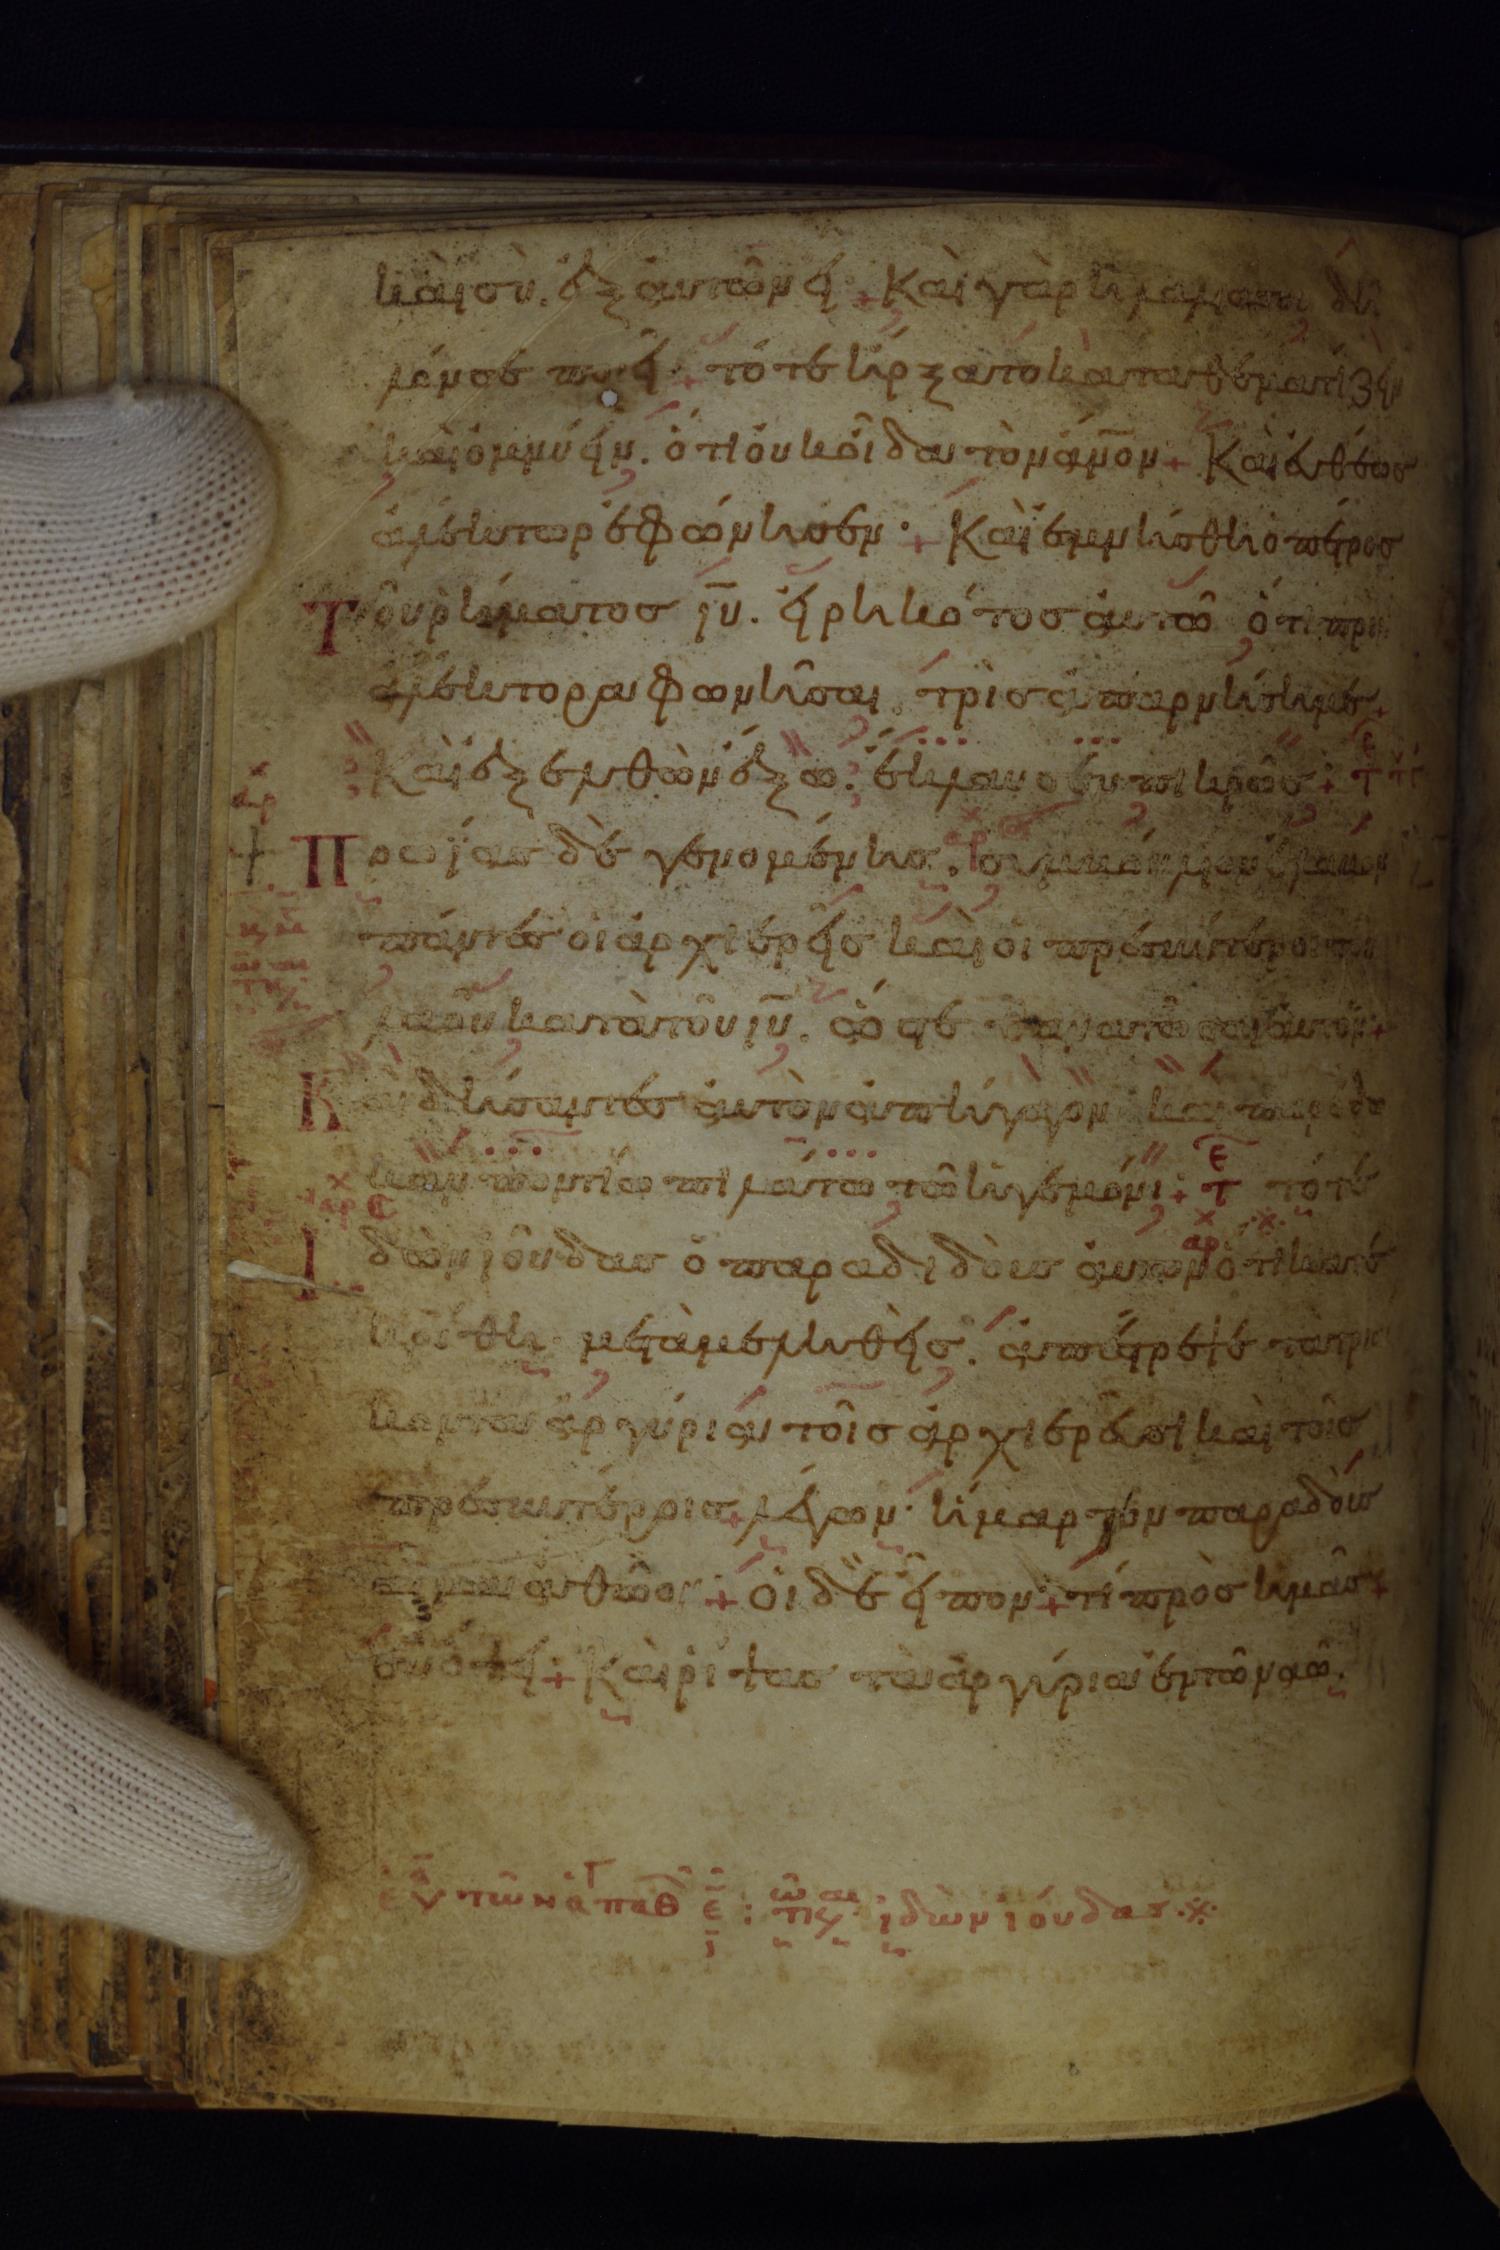 καὶ σὺ. ἐξ αὐτῶν εἶ· + Καὶ γὰρ ἡ λαλιά σου δῆ
λόν σε ποιεῖ· + τότε ἤρξατο καταναθεματίζειν
καὶ ὀμνύειν. ὅτι οὐκ οἶδα τὸν ἄνον + Καὶ εὐθέως
ἀλέκτωρ ἐφώνησεν· + Καὶ ἐμνήσθη ὁ πέτρος
Τοῦ ῥήματος ἰυ. εἰρηκότος αὐτῶ ὅτι πρὶν
ἀλέκτορα φωνῆσαι τρὶς ἀπαρνήσῃ με +
Καὶ ἐξελθὼν ἔξω. ἔκλαυσεν πικρῶς· +
Πρωΐας δὲ γενομένης. συμβούλιον ἔλαβον
πάντες οἱ ἀρχιερεῖς καὶ οἱ πρεσβύτεροι τοῦ
λαοῦ κατὰ τοῦ ἰυ. ὥστε θανατῶσαι αὐτόν· +
Καὶ δήσαντες αὐτὸν ἀπήγαγον καὶ παρέδω
καν ποντίω πιλάτω τῶ ἡγεμόνι· + τότε
Ἰδὼν ἰούδας ὁ παραδιδοὺς αὐτὸν ὅτι κατε
κρίθη· μεταμεληθεὶς. ἀπέστρεψε τὰ τρι
άκοντα ἀργύρια τοῖς ἀρχιερεῦσι καὶ τοῖς
πρεσβυτέροις + λέγων· ἥμαρτον παραδοὺς
αἷμα ἀθῶον· + οἱ δὲ εἶπον· + τί πρὸς ἡμᾶς +
σὺ ὄψει· + Καὶ ῥίψας τὰ ἀργύρια ἐν τῶ ναῶ.
ἰδὼν ἰούδας